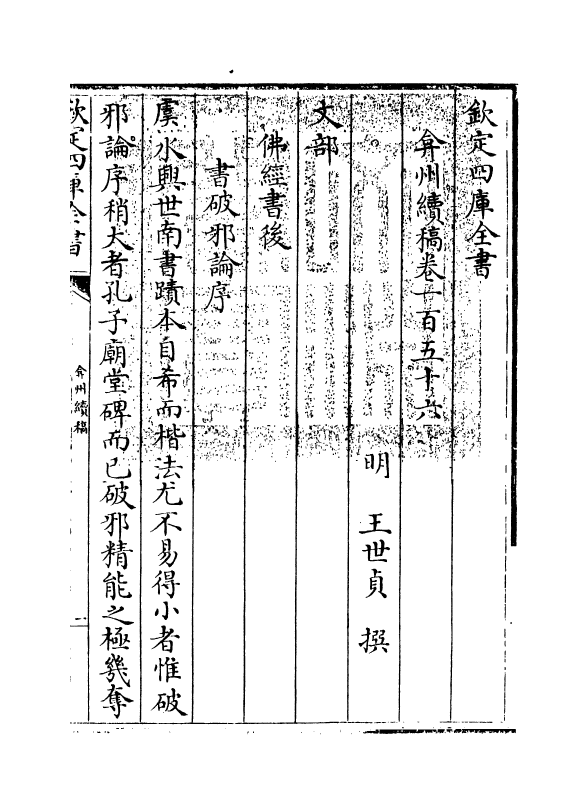 欽定四庫全書
弇州續稿卷一百五十六
明　王世貞　撰
文部
佛經書後
書破邪論序
虞永興世南書蹟本自希而楷法尤不易得小者惟破
邪論序稍大者孔子廟堂碑而已破邪精能之極幾奪
欽定四庫全書
弇州續稿
一